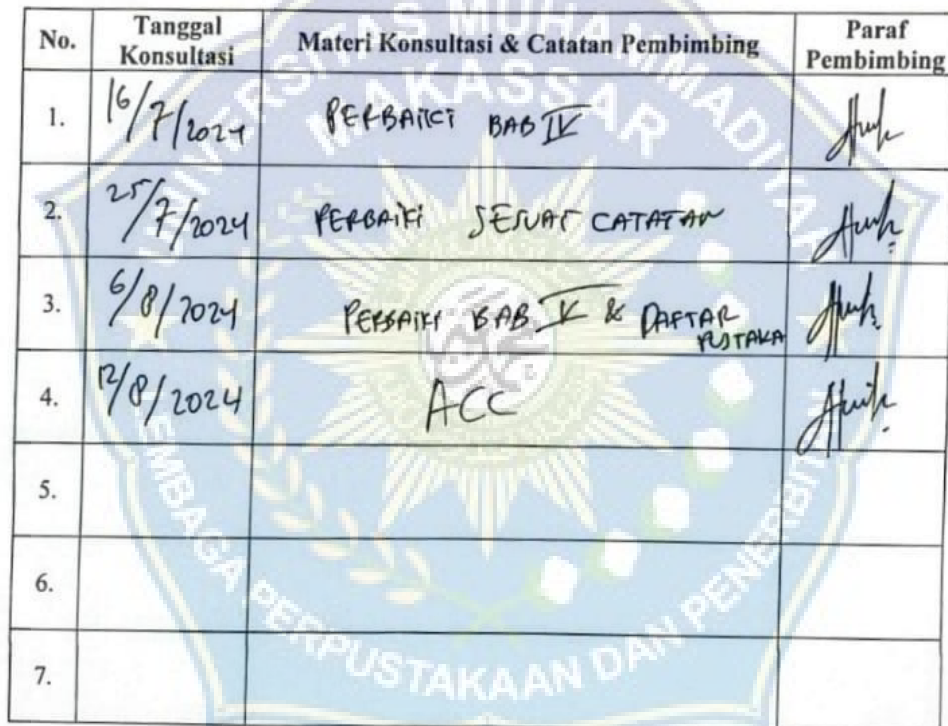 No. Tanggal Konsultasi Materi Konsultasi & Catatan Pembimbing Paraf Pembimbing
1. 16/7/2024 PERBAIKI BAB IV
2. 25/7/2024 PERBAIKI SESUAI CATATAN
3. 6/8/2024 PERBAIKI BAB & DAFTAR PUSTAKA
4. 12/8/2024 ACC
5.
6.
7.
UNIVERSITAS MUHAMMADIYAH
MAKASSAR
LEMBAGA PERPUSTAKAAN DAN PENERBIT